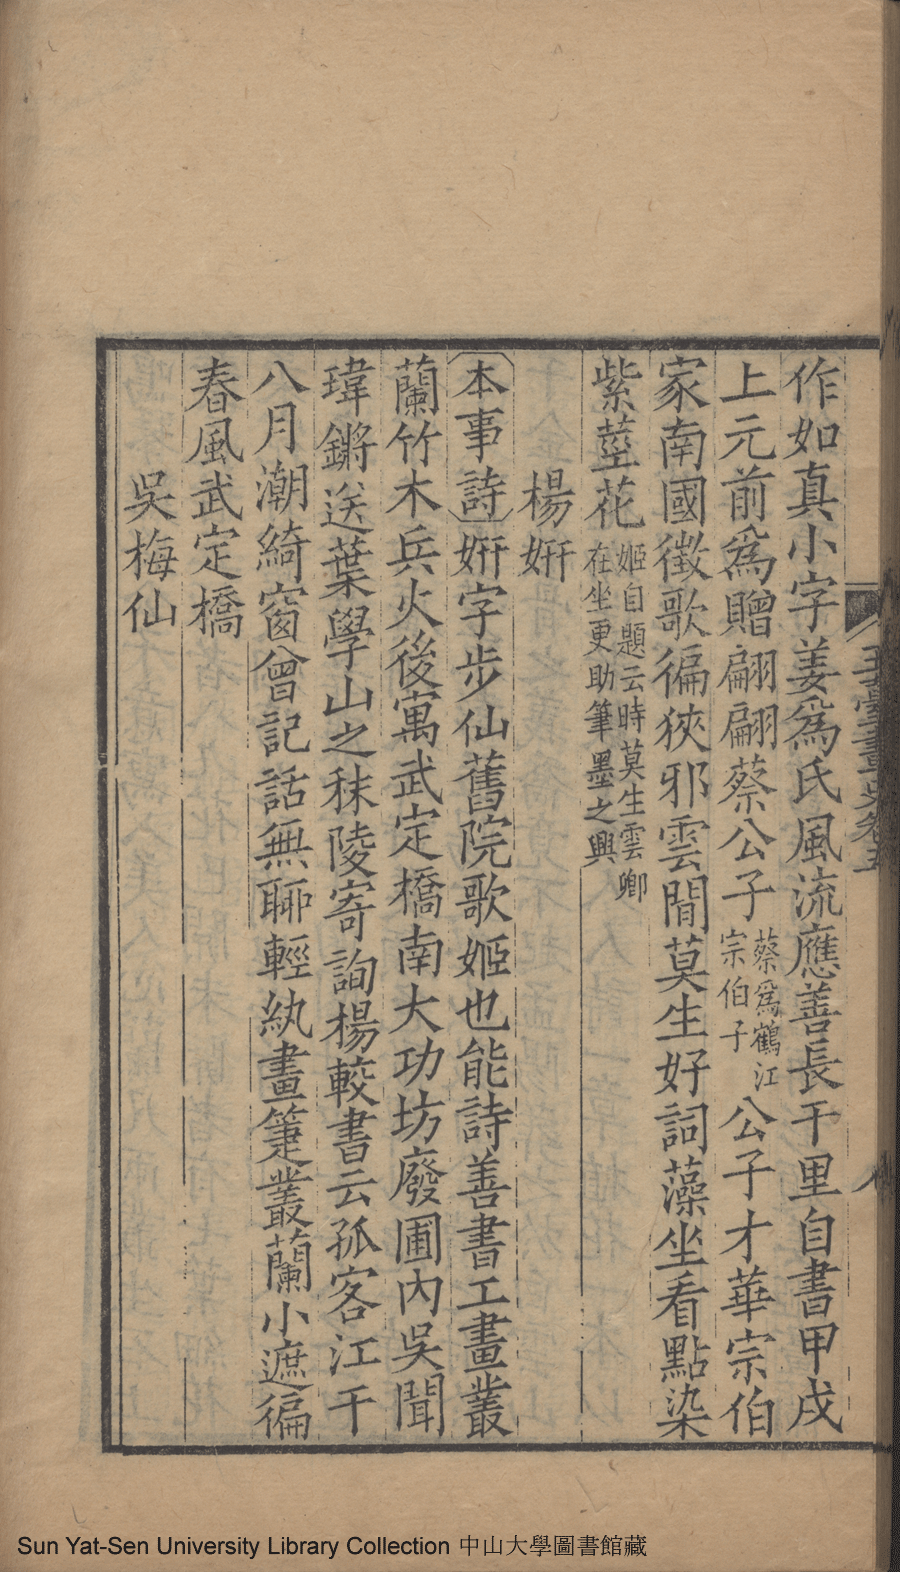 作如真小字姜爲氏風流應善長千里自書甲戌
上元前爲贈翩翩蔡公子蔡爲鶴江宗伯子公子才華宗伯
家南國徵歌徧狹邪雲間莫生好詞藻坐看點染
紫莖花姬自題云時莫生雲卿在坐更助筆墨之興
楊姸
本事詩姸字步仙舊院歌姬也能詩善書工畫叢
蘭竹木兵火後寓武定橋南大功坊廢圃內吳聞
瑋鏘送葉學山之秣陵寄詢楊較書云孤客江干
八月潮綺窗曾記話無聊輕紈畫箑叢蘭小遮徧
春風武定橋
吳梅仙
玉臺畫史卷五
Sun Yat-Sen University Library Collection 中山大學圖書館藏